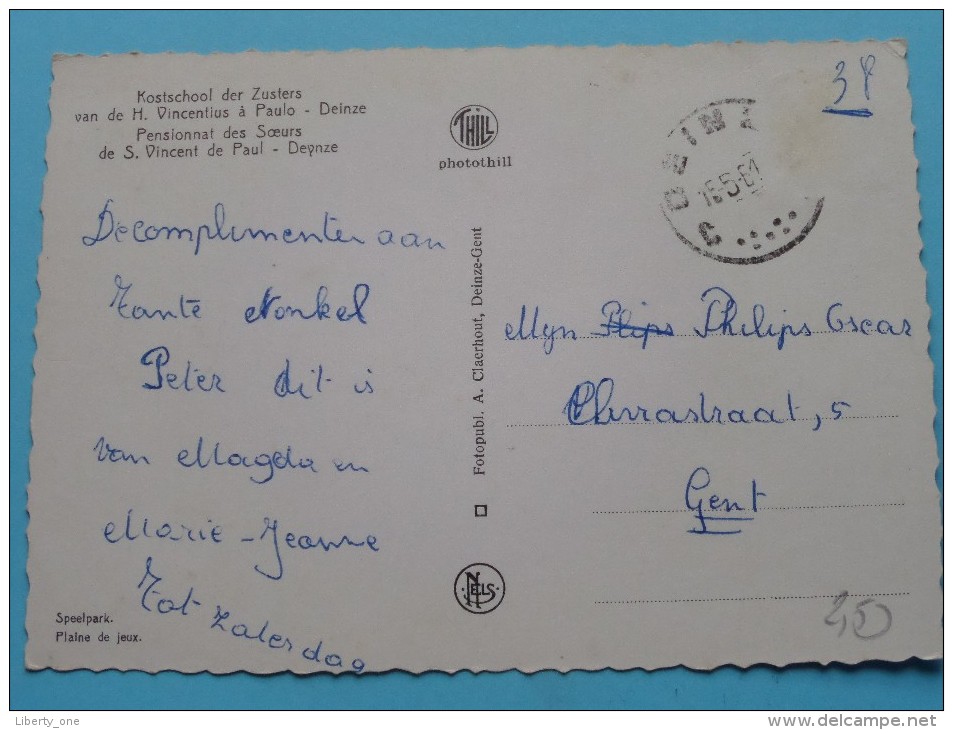 Kostschool der Zusters
van de H. Vincentius à Paulo - Deinze
Pensionnat des Sœurs
de S. Vincent de Paul - Deynze
THILL
photothill
34
DEINZE
16-5-61
C
De complimenten aan
Tante Nonkel
Peter dit is
van Magda en
Marie-Jeanne
Tot zaterdag
Speelpark.
Plaine de jeux.
Fotopubl. A. Claerhout, Deinze-Gent
NELS
Mijn Flips Philips Oscar
5
Gent
2,50
Liberty_one
http://www.delcampe.net